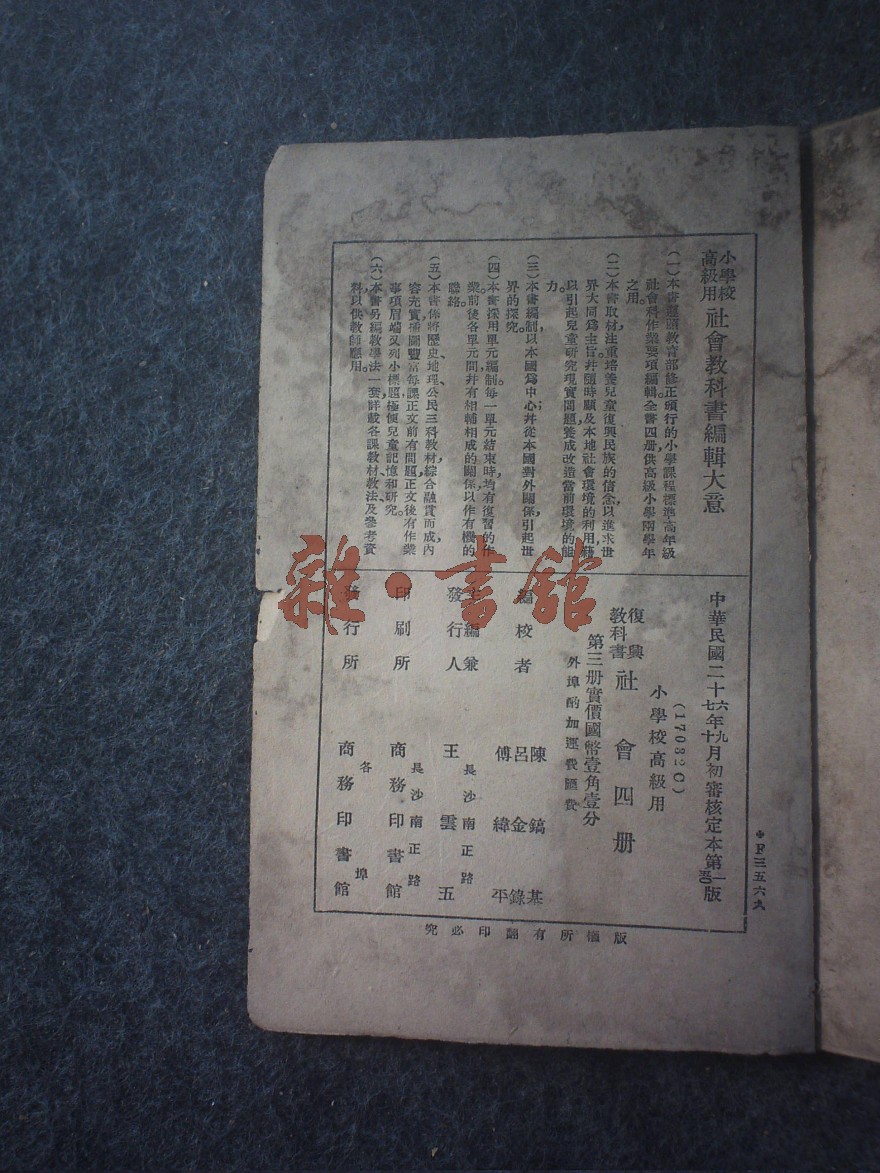 小學校高級用 社會教科書編輯大意
(一)本書遵照教育部修正頒行的小學課程標準高年級
社會科作業要項編輯全書四册供高級小學兩學年
之用。
(二)本書取材注重培養兒童復興民族的信念以進求世
界大同爲主旨并隨時顧及本地社會環境的利用藉
以引起兒童研究現實問題養成改造當前環境的能
力。
(三)本書編制以本國爲中心;并從本國對外關係引起世
界的探究。
(四)本書採用單元編制每一單元結束時,均有復習的作
業。前後各單元間并有相輔相成的關係以作有機的
聯絡。
(五)本書係將歷史、地理、公民三科教材,綜合融貫而成;內
容充實,插圖豐富每課正文前有問題,正文後有作業
事項眉端又列小標題,極便兒童記憶和研究。
(六)本書另編教學法一套,詳載各課教材、教法,及參考資
料,以供教師應用。
中華民國二十六年九月初審核定本第一版
七 十
(17082C)
小學校高級用
復興教科書 社會四册
第三册實價國幣壹角壹分
外埠酌加運費匯費
編校者 陳鎬基 呂金錄 傅緯平
主編兼發行人 王雲五
長沙南正路
印刷所 商務印書館
長沙南正路
發行所 商務印書館
各埠
版權所有翻印必究
＊F三五六九
雜·書館